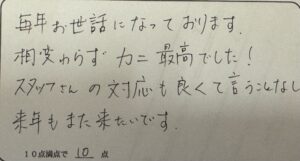 毎年お世話になっております.
相変わらず カニ 最高でした!
スタッフさんの対応も良くて言うことなし
来年もまた来たいです.
10点満点で 10 点